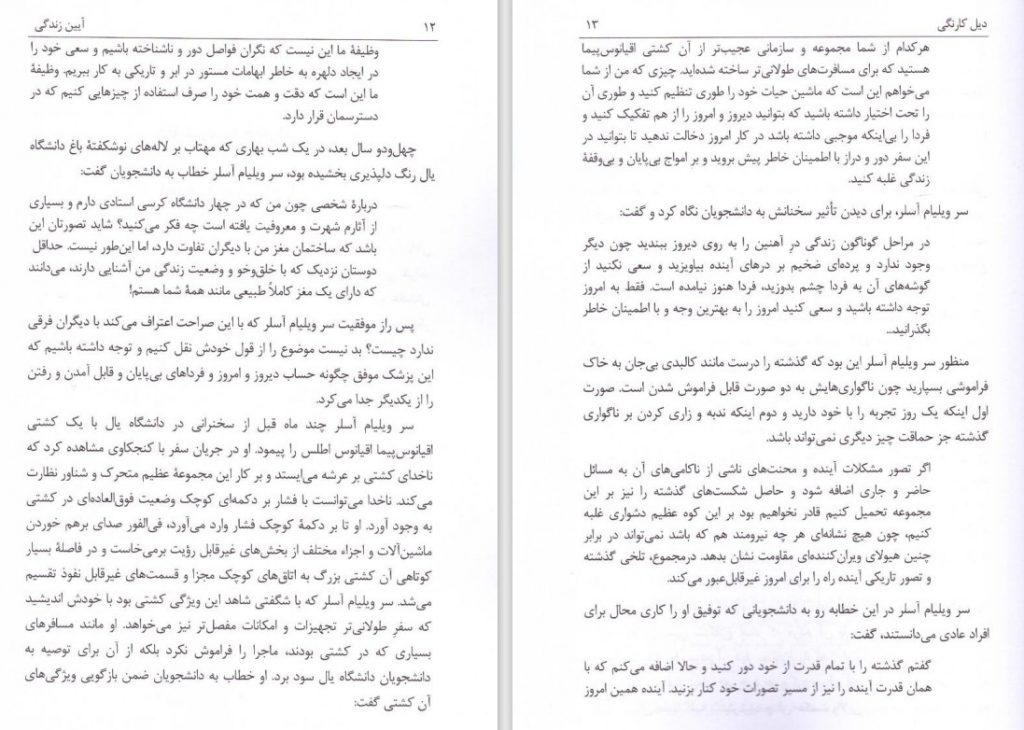 آیین زندگی
۱۲
وظیفهٔ ما این نیست که نگران فواصل دور و ناشناخته باشیم و سعی خود را
در ایجاد دلهره به خاطر ابهامات مستور در ابر و تاریکی به کار ببریم. وظیفهٔ
ما این است که دقت و همت خود را صرف استفاده از چیزهایی کنیم که در
دسترسمان قرار دارد.
چهل‌ودو سال بعد، در یک شب بهاری که مهتاب بر لاله‌های نوشکفتهٔ باغ دانشگاه
یال رنگ دلپذیری بخشیده بود، سر ویلیام آسلر خطاب به دانشجویان گفت:
دربارهٔ شخصی چون من که در چهار دانشگاه کرسی استادی دارم و بسیاری
از آثارم شهرت و معروفیت یافته است چه فکر می‌کنید؟ شاید تصورتان این
باشد که ساختمان مغز من با دیگران تفاوت دارد، اما این‌طور نیست. حداقل
دوستان نزدیک که با خلق‌وخو و وضعیت زندگی من آشنایی دارند، می‌دانند
که دارای یک مغز کاملاً طبیعی مانند همهٔ شما هستم!
پس راز موفقیت سر ویلیام آسلر که با این صراحت اعتراف می‌کند با دیگران فرقی
ندارد چیست؟ بد نیست موضوع را از قول خودش نقل کنیم و توجه داشته باشیم که
این پزشک موفق چگونه حساب دیروز و امروز و فرداهای بی‌پایان و قابل آمدن و رفتن
را از یکدیگر جدا می‌کرد.
سر ویلیام آسلر چند ماه قبل از سخنرانی در دانشگاه یال با یک کشتی
اقیانوس‌پیما اقیانوس اطلس را پیمود. او در جریان سفر با کنجکاوی مشاهده کرد که
ناخدای کشتی بر عرشه می‌ایستد و بر کار این مجموعهٔ عظیم متحرک و شناور نظارت
می‌کند. ناخدا می‌توانست با فشار بر دکمه‌ای کوچک وضعیت فوق‌العاده‌ای در کشتی
به وجود آورد. او تا بر دکمهٔ کوچک فشار وارد می‌آورد، فی‌الفور صدای برهم خوردن
ماشین‌آلات و اجزاء مختلف از بخش‌های غیرقابل رؤیت برمی‌خاست و در فاصلهٔ بسیار
کوتاهی آن کشتی بزرگ به اتاق‌های کوچک مجزا و قسمت‌های غیرقابل نفوذ تقسیم
می‌شد. سر ویلیام آسلر که با شگفتی شاهد این ویژگی کشتی بود با خودش اندیشید
که سفرِ طولانی‌تر تجهیزات و امکانات مفصل‌تر نیز می‌خواهد. او مانند مسافرهای
بسیاری که در کشتی بودند، ماجرا را فراموش نکرد بلکه از آن برای توصیه به
دانشجویان دانشگاه یال سود برد. او خطاب به دانشجویان ضمن بازگویی ویژگی‌های
آن کشتی گفت:
دیل کارنگی
۱۳
هرکدام از شما مجموعه و سازمانی عجیب‌تر از آن کشتی اقیانوس‌پیما
هستید که برای مسافرت‌های طولانی‌تر ساخته شده‌اید. چیزی که من از شما
می‌خواهم این است که ماشین حیات خود را طوری تنظیم کنید و طوری آن
را تحت اختیار داشته باشید که بتوانید دیروز و امروز را از هم تفکیک کنید و
فردا را بی‌اینکه موجبی داشته باشد در کار امروز دخالت ندهید تا بتوانید در
این سفر دور و دراز با اطمینان خاطر پیش بروید و بر امواج بی‌پایان و بی‌وقفهٔ
زندگی غلبه کنید.
سر ویلیام آسلر، برای دیدن تأثیر سخنانش به دانشجویان نگاه کرد و گفت:
در مراحل گوناگون زندگی درِ آهنین را به روی دیروز ببندید چون دیگر
وجود ندارد و پرده‌ای ضخیم بر درهای آینده بیاویزید و سعی نکنید از
گوشه‌های آن به فردا چشم بدوزید، فردا هنوز نیامده است. فقط به امروز
توجه داشته باشید و سعی کنید امروز را به بهترین وجه و با اطمینان خاطر
بگذرانید...
منظور سر ویلیام آسلر این بود که گذشته را درست مانند کالبدی بی‌جان به خاک
فراموشی بسپارید چون ناگواری‌هایش به دو صورت قابل فراموش شدن است. صورت
اول اینکه یک روز تجربه را با خود دارید و دوم اینکه ندبه و زاری کردن بر ناگواری
گذشته جز حماقت چیز دیگری نمی‌تواند باشد.
اگر تصور مشکلات آینده و محنت‌های ناشی از ناکامی‌های آن به مسائل
حاضر و جاری اضافه شود و حاصل شکست‌های گذشته را نیز بر این
مجموعه تحمیل کنیم قادر نخواهیم بود بر این کوه عظیم دشواری غلبه
کنیم، چون هیچ نشانه‌ای هر چه نیرومند هم که باشد نمی‌تواند در برابر
چنین هیولای ویران‌کننده‌ای مقاومت نشان بدهد. درمجموع، تلخی گذشته
و تصور تاریکی آینده راه را برای امروز غیرقابل‌عبور می‌کند.
سر ویلیام آسلر در این خطابه رو به دانشجویانی که توفیق او را کاری محال برای
افراد عادی می‌دانستند، گفت:
گفتم گذشته را با تمام قدرت از خود دور کنید و حالا اضافه می‌کنم که با
همان قدرت آینده را نیز از مسیر تصورات خود کنار بزنید. آینده همین امروز